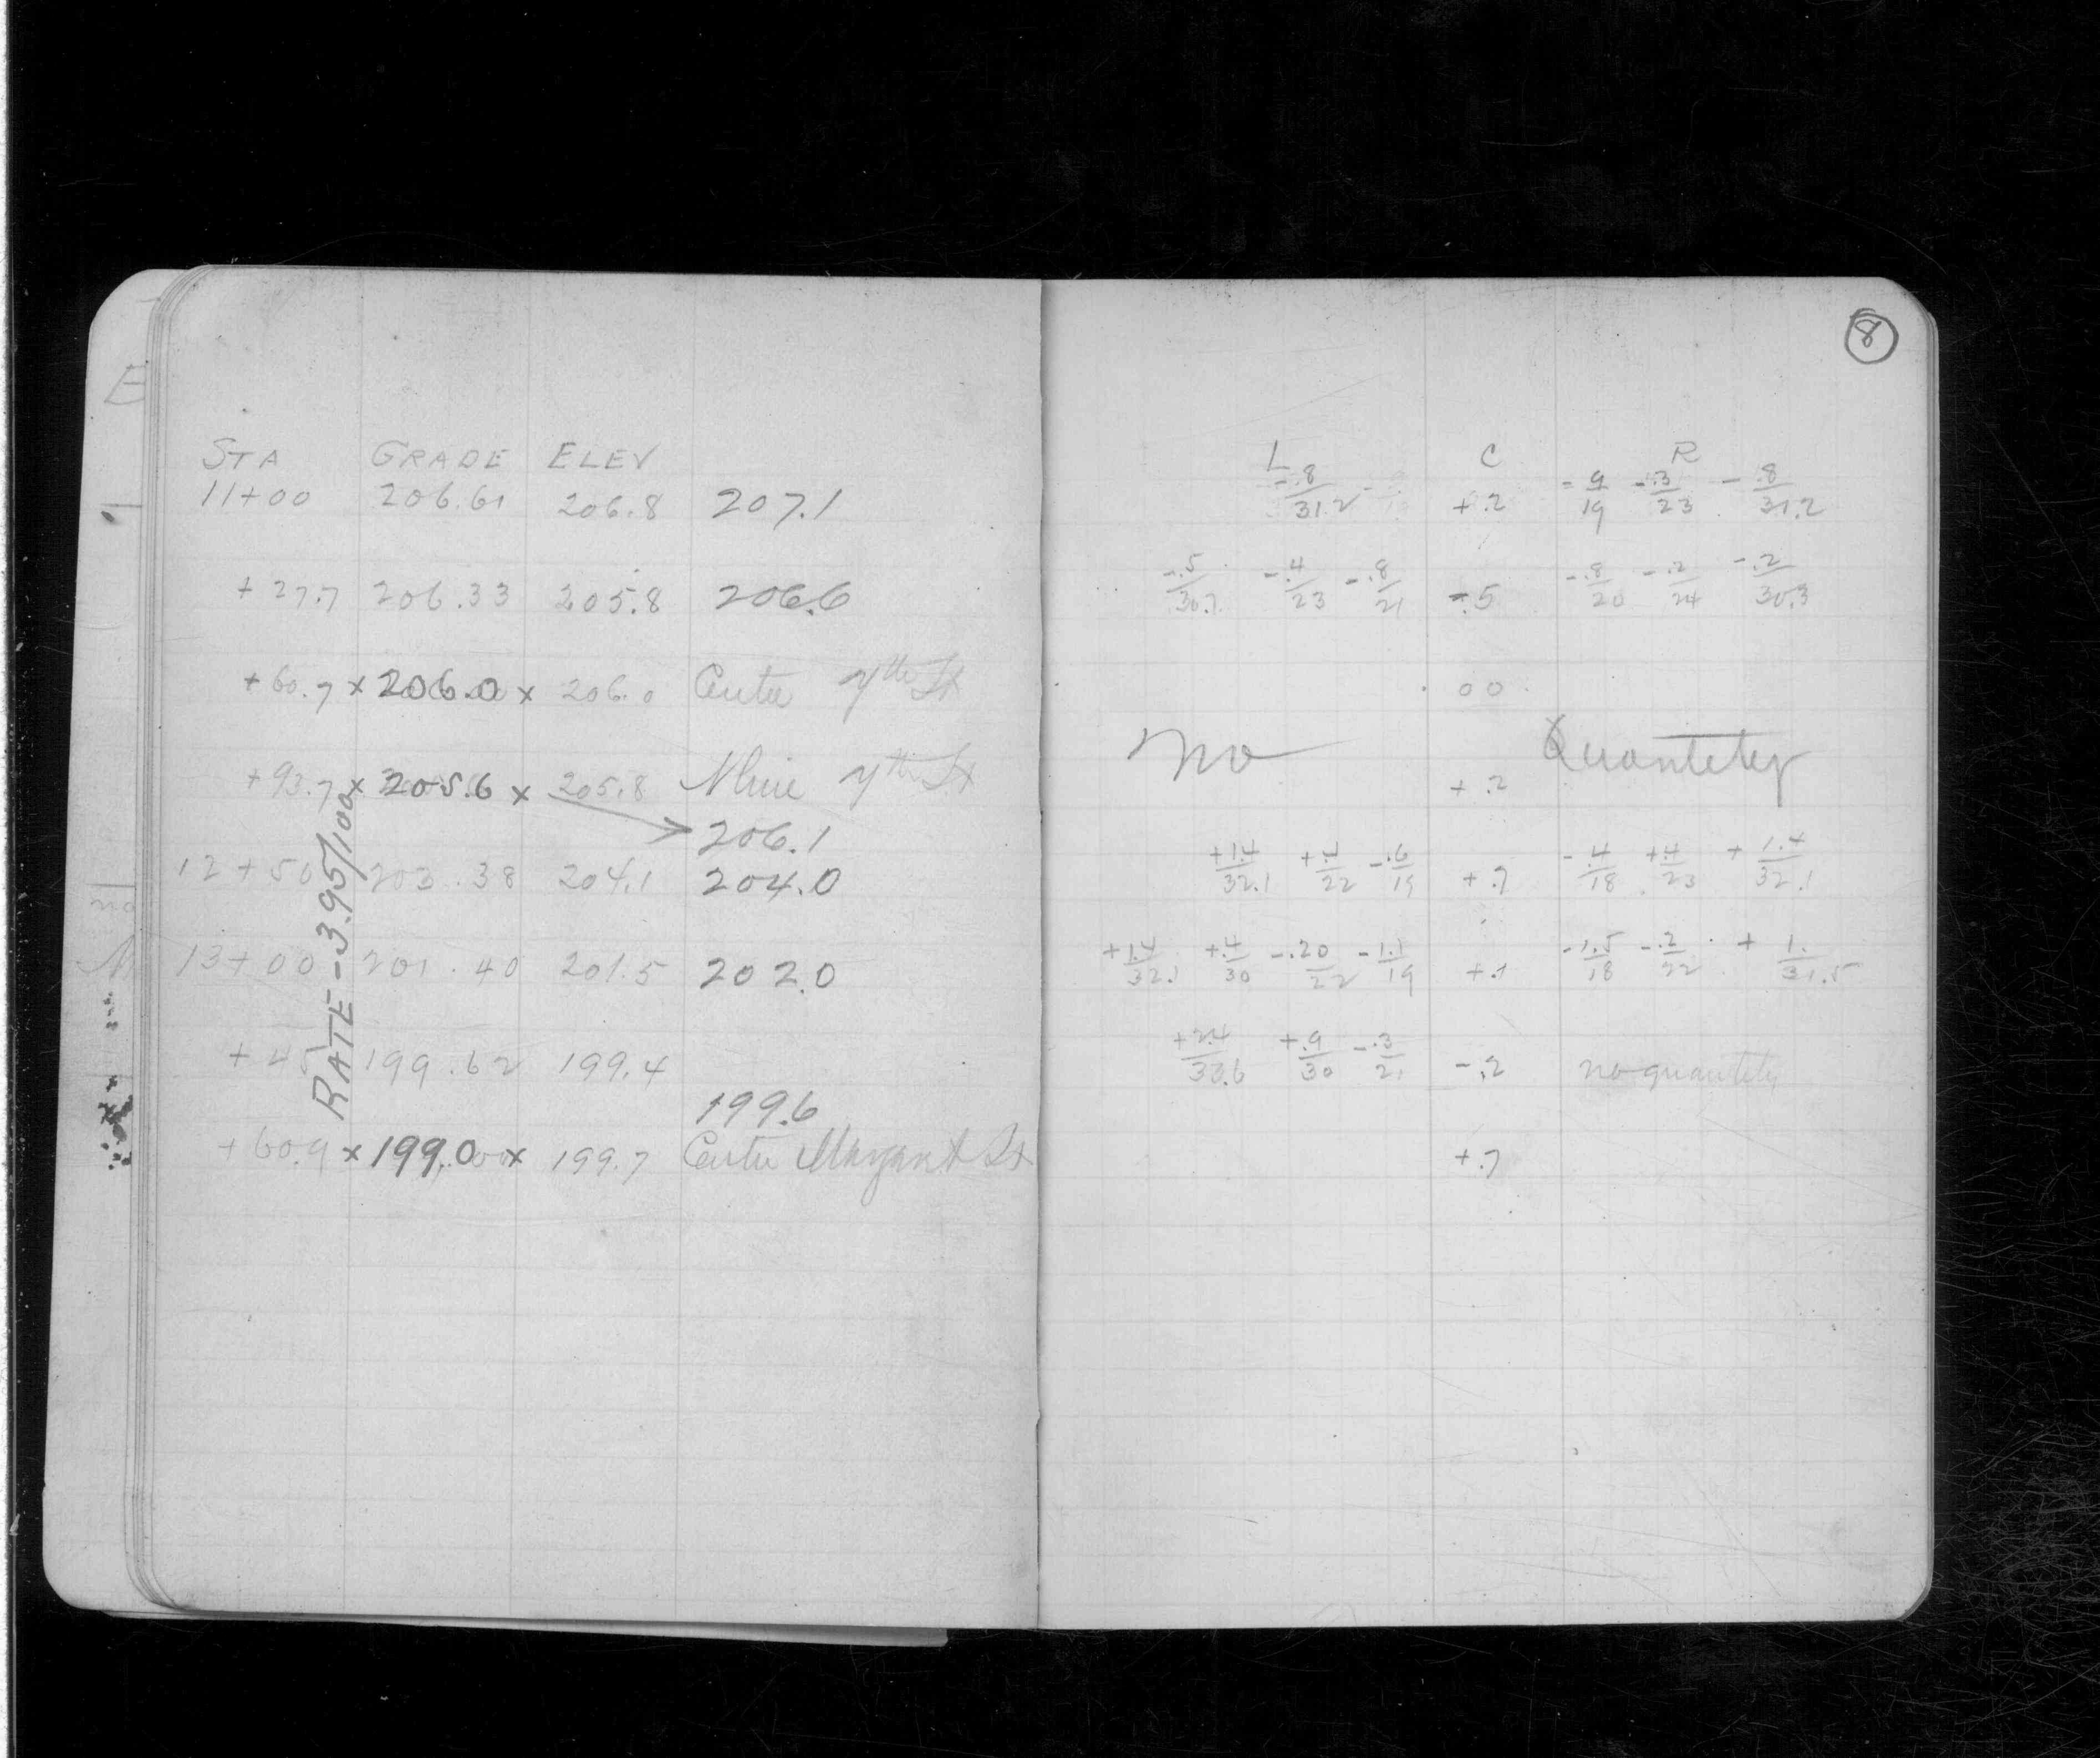 8
STA GRADE ELEV L C R
11+00 206.61 206.8 207.1 -.8/31.2 +.2 -.9/19 -.3/23 -.8/31.2
+27.7 206.33 205.8 206.6 -.5/30.7 -.4/23 -.8/21 -.5 -.8/20 -.2/24 -.2/30.3
+60.7 x 206.0 x 206.0 Center 7th St 00
+93.7 x 205.6 x 205.8 N line 7th St no +.2 Quantity
206.1
12+50 203.38 204.1 204.0 +1.4/32.1 +.4/22 -.6/19 +.7 -.4/18 +.4/23 +1.4/32.1
13+00 201.40 201.5 202.0 +1.4/32.1 +.4/30 -.20/22 -1.1/19 +.1 -1.5/18 -.2/22 +1./31.5
+45 199.62 199.4 +2.4/33.6 +.9/30 -.3/21 -.2 no quantity
199.6
+60.9 x 199.0 x 199.7 Center St +.7
RATE -3.95/100